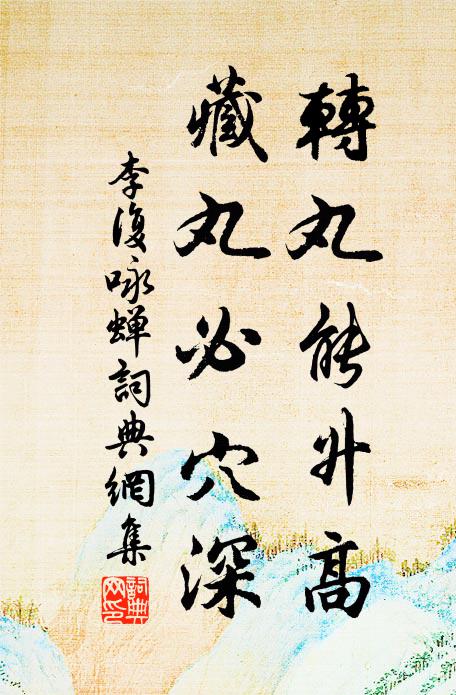 轉丸能升高
藏丸必穴深
李復咏蟬詞典網集
詞典網印